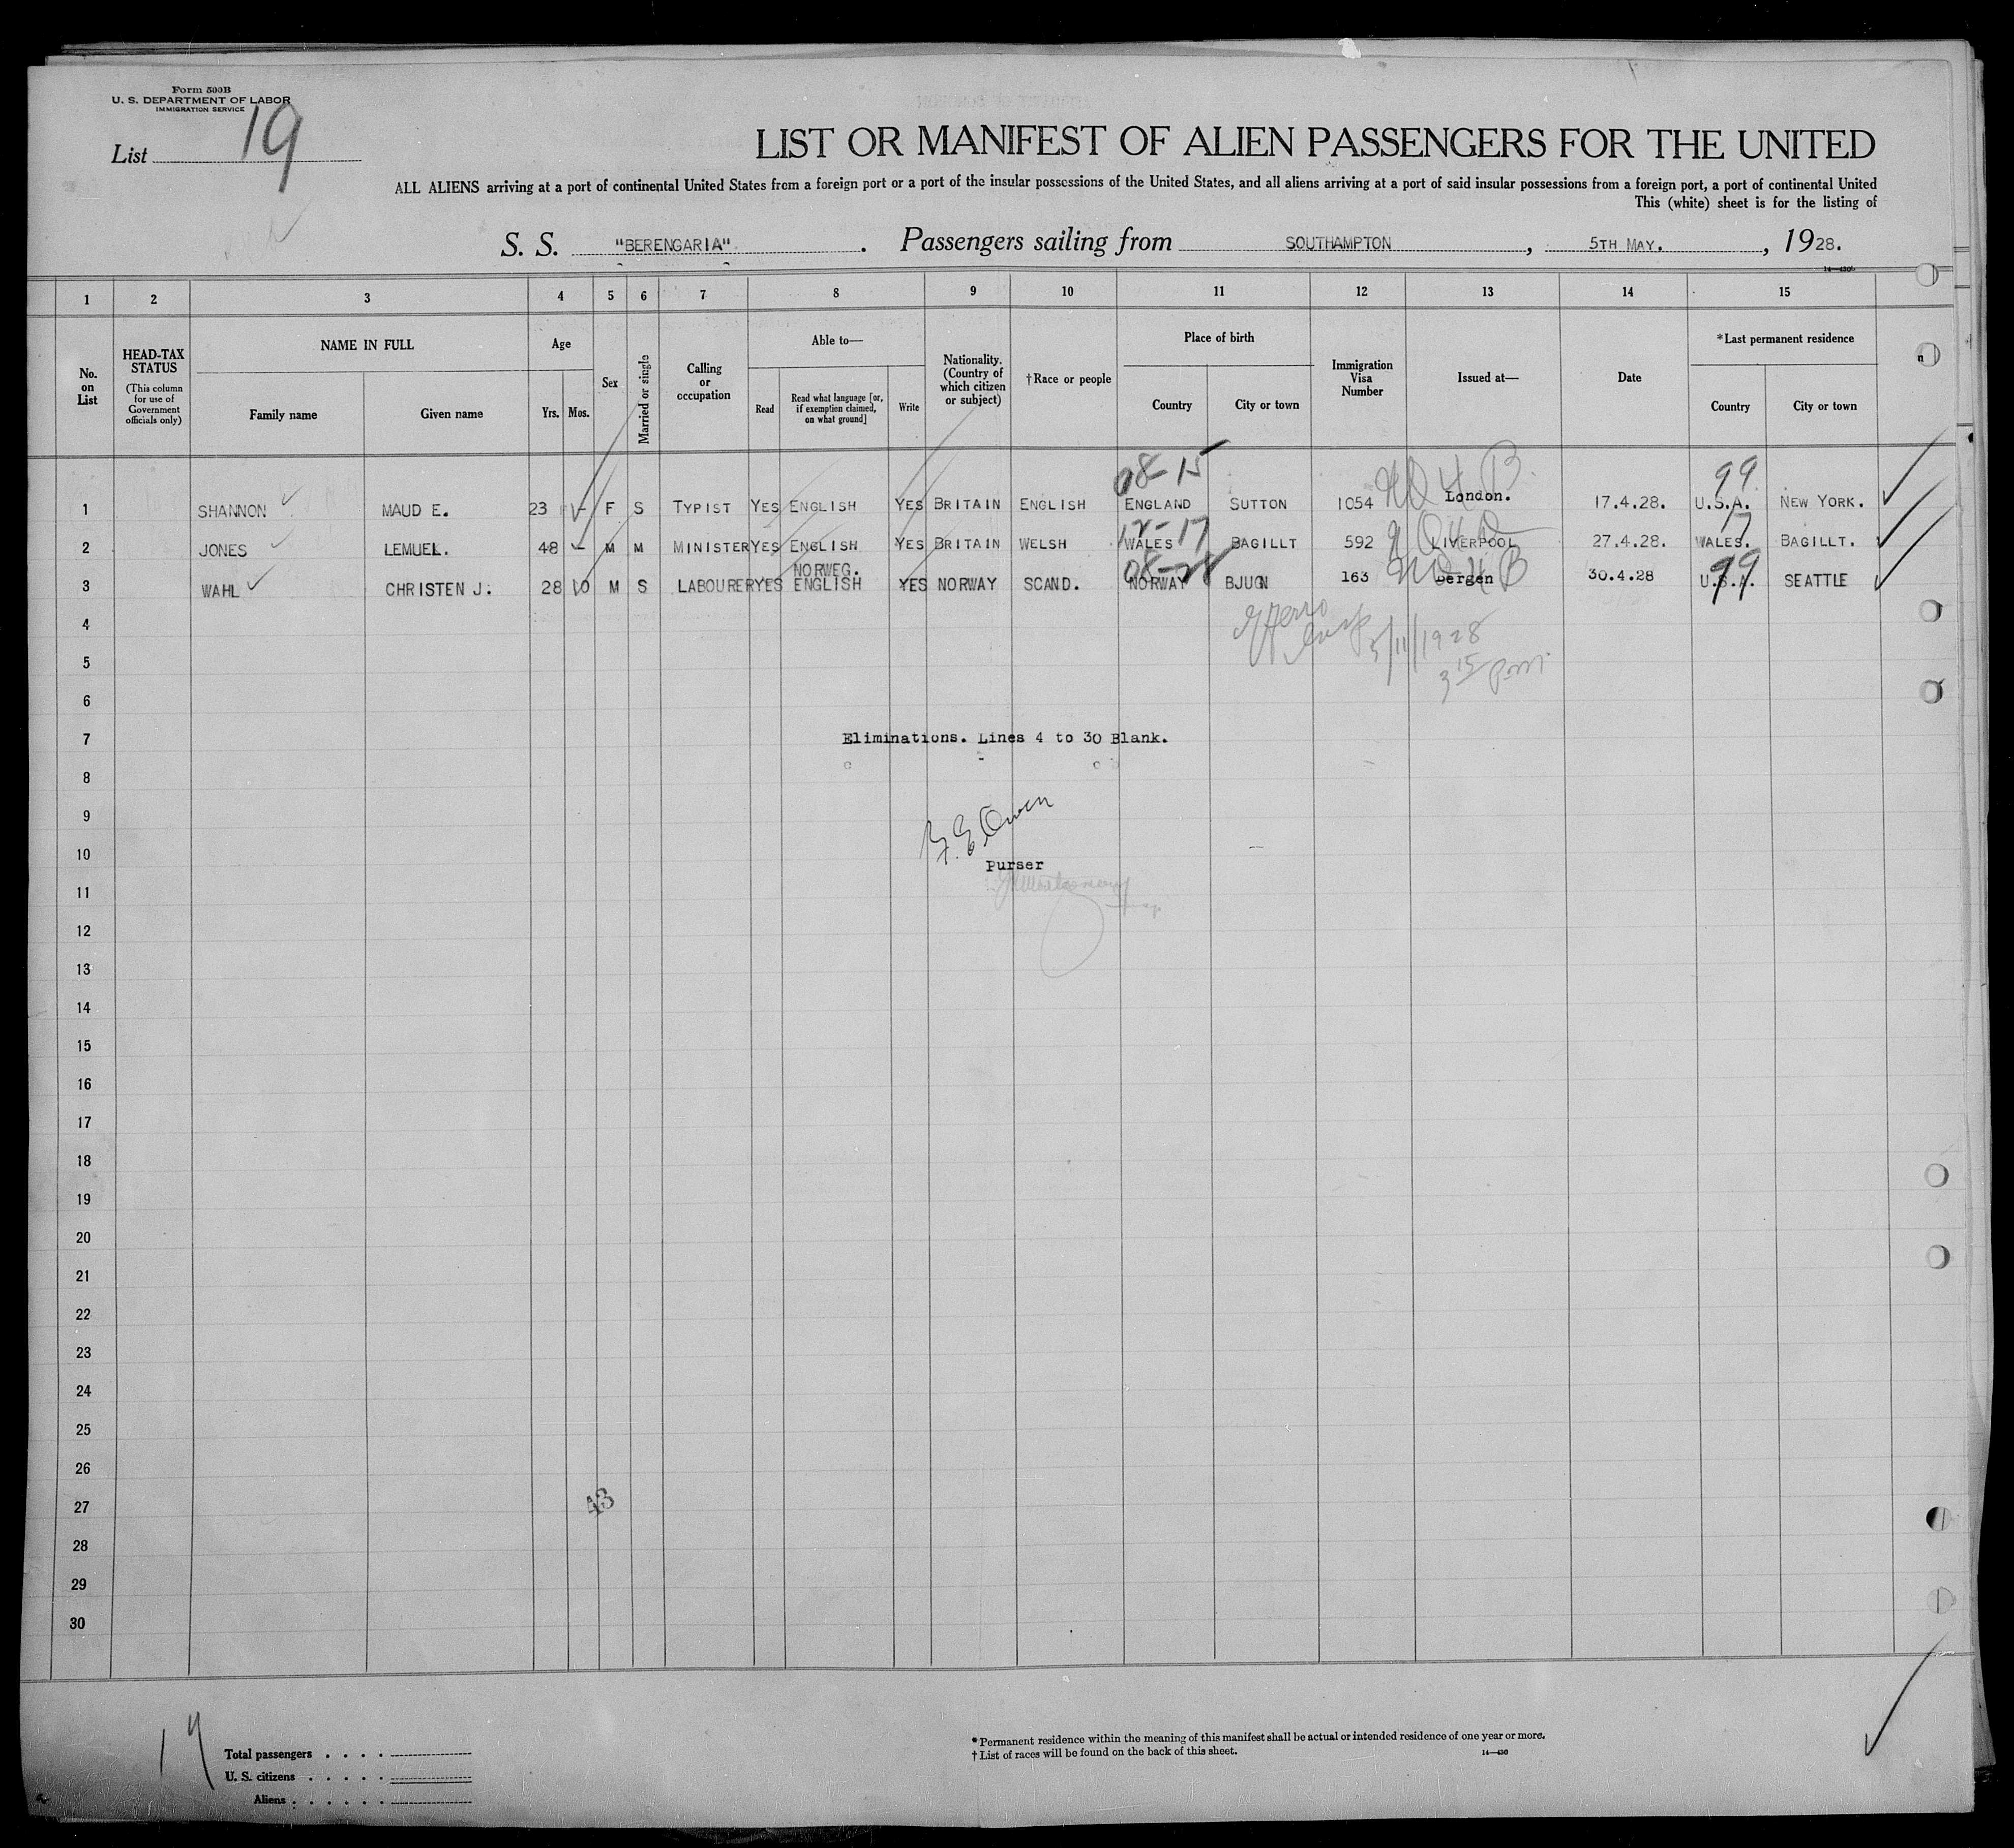 Form 500B
U. S. DEPARTMENT OF LABOR
IMMIGRATION SERVICE
List 19
LIST OR MANIFEST OF ALIEN PASSENGERS FOR THE UNITED
ALL ALIENS arriving at a port of continental United States from a foreign port or a port of the insular possessions of the United States, and all aliens arriving at a port of said insular possessions from a foreign port, a port of continental United
This (white) sheet is for the listing of
S. S. "BERENGARIA". Passengers sailing from SOUTHAMPTON, 5TH MAY., 1928.
1 2 3 4 5 6 7 8 9 10 11 12 13 14 15
No. on List
HEAD-TAX STATUS
(This column for use of Government officials only)
NAME IN FULL
Family name
Given name
Age
Yrs. Mos.
Sex
Married or single
Calling or occupation
Able to—
Read
Read what language [or, if exemption claimed, on what ground]
Write
Nationality. (Country of which citizen or subject)
†Race or people
Place of birth
Country
City or town
Immigration Visa Number
Issued at—
Date
*Last permanent residence
Country
City or town
08-15 99
1 SHANNON MAUD E. 23 - F S TYPIST YES ENGLISH YES BRITAIN ENGLISH ENGLAND SUTTON 1054 London. 17.4.28. U.S.A. NEW YORK.
17
2 JONES LEMUEL. 48 - M M MINISTER YES ENGLISH YES BRITAIN WELSH WALES BAGILLT 592 LIVERPOOL 27.4.28. WALES. BAGILLT.
NORWEG.
99
3 WAHL CHRISTEN J. 28 10 M S LABOURER YES ENGLISH YES NORWAY SCAND. NORWAY BJUGN 163 Bergen 30.4.28 U.S.A. SEATTLE
4
5/11/1928
5
3 15 pm
6
7 Eliminations. Lines 4 to 30 Blank.
8
9
F. E. Owen
10 Purser
11
12
13
14
15
16
17
18
19
20
21
22
23
24
25
26
27 43
28
29
30
19
Total passengers
U. S. citizens
Aliens
* Permanent residence within the meaning of this manifest shall be actual or intended residence of one year or more.
† List of races will be found on the back of this sheet.
14—430